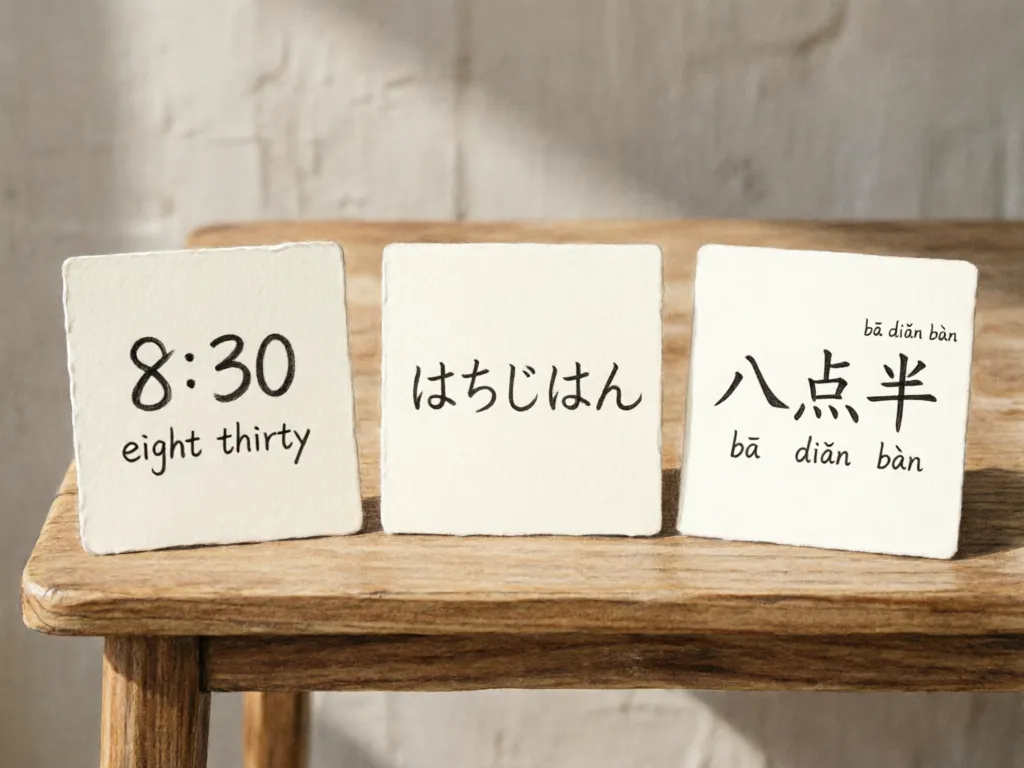 8:30
eight thirty
はちじはん
bā diǎn bàn
八点半
bā diǎn bàn